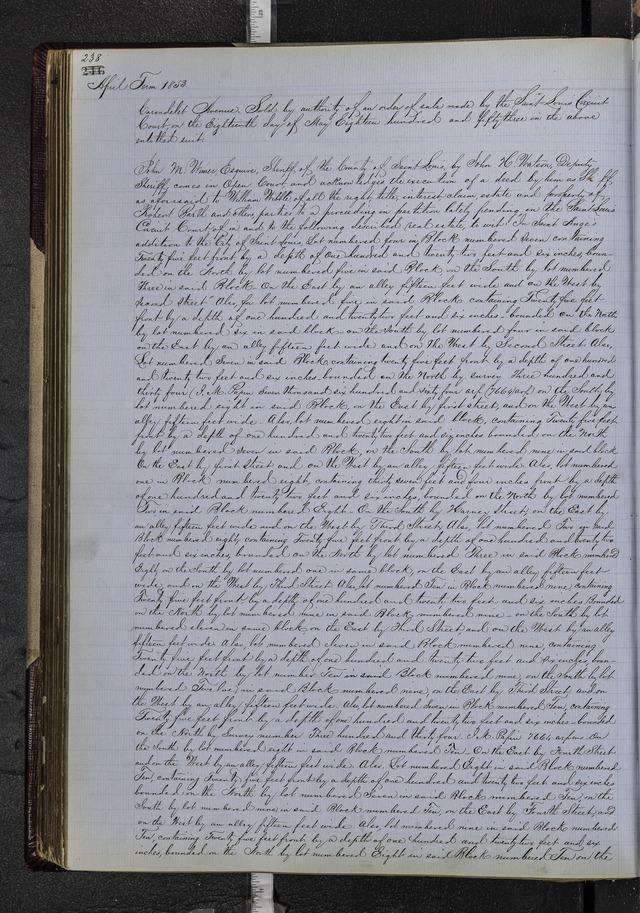 238
April Term 1853
Carondelet Avenue. Sold by authority of an order of sale made by the Saint Louis Circuit
Court on the Eighteenth day of May Eighteen hundred and fifty three in the above
entitled suit.
John M. Wimer, Esquire, Sheriff of the County of Saint Louis, by John H. Watson, Deputy
Sheriff comes in Open Court and acknowledges the execution of a deed by him as Sheriff
as aforesaid to William Wibble, of all the right, title, interest, claim, estate and property of
Robert Parth and others parties to a proceeding in partition lately pending in the Saint Louis
Circuit Court of in and to the following described real estate, to wit: In Saint Ange's
addition to the City of Saint Louis, Lot numbered four in Block numbered seven containing
Twenty five feet front by a depth of one hundred and twenty two feet and six inches, boun-
ded on the North by lot numbered five in said Block, on the South by lot numbered
Three in said Block. On the East by an alley fifteen feet wide and on the West by
second street. Also, lot numbered five, in said Block containing Twenty five feet
front by a depth of one hundred and twenty two feet and six inches. bounded on the North
by lot numbered six in said block on the South by lot numbered four in said block
on the East by an alley fifteen feet wide and on the West by Second Street. Also,
Lot numbered Seven in said Block, containing twenty five feet front by a depth of one hundred
and twenty two feet and six inches bounded on the North by survey three hundred and
thirty four (J. M. Papin seven thousand six hundred and sixty four arp) (7664 arp) on the South, by
lot numbered eight in said Block, on the East by first street, and on the West by an
alley fifteen feet wide. Also, lot numbered eight in said block, containing Twenty five feet
front by a depth of one hundred and twenty two feet and six inches bounded on the North
by lot numbered Seven in said Block, on the South by lot numbered nine in said block
On the East by first Street and on the West by an alley fifteen feet wide. Also, lot numbered
one in Block numbered eight, containing thirty seven feet and four inches front by a depth
of one hundred and Twenty two feet and six inches, bounded on the North by lot numbered
Two in said Block numbered Eight. On the South by Harney Street, on the East by
an alley fifteen feet wide and on the West by Third Street, Also, lot numbered Two in said
Block numbered eight, containing Twenty five feet front by a depth of one hundred and twenty two
feet and six inches, bounded on the North by lot numbered Three in said Block numbered
Eight, on the South by lot numbered one in same block, on the East by an alley fifteen feet
wide, and on the West by Third Street. Also, lot numbered Ten in Block numbered nine, containing
Twenty five feet front by a depth of one hundred and twenty two feet and six inches, bounded
on the North by lot numbered nine in said Block, numbered nine, on the South by lot
numbered eleven in same block, on the East by Third Street, and on the West by an alley
fifteen feet wide. Also, lot numbered eleven in said Block numbered nine, containing
Twenty five feet front by a depth of one hundred and twenty two feet and six inches boun-
ded on the North by lot number Ten in said Block numbered nine, on the South by lot
numbered Twelve, in said Block numbered nine, on the East by Third Street, and on
the West by an alley fifteen feet wide. Also, lot numbered Seven in Block numbered Ten, containing
Twenty five feet front by a depth of one hundred and twenty two feet and six inches bounded
on the North by Survey number Three hundred and thirty four J. M. Papin 7664 arpens on
the South by lot numbered eight in said Block numbered Ten. On the East by Fourth Street
and on the West by an alley fifteen feet wide. Also Lot numbered Eight in said Block numbered
Ten, containing Twenty five feet front by a depth of one hundred and twenty two feet and six inches
bounded on the North by lot numbered Seven in said Block numbered Ten, on the
South by lot numbered nine in said Block numbered Ten, on the East by Fourth Street, and
on the West by an alley fifteen feet wide. Also lot numbered nine in said Block numbered
Ten, containing Twenty five feet front by a depth of one hundred and twenty two feet and six
inches, bounded on the North by lot numbered Eight in said Block numbered Ten on the